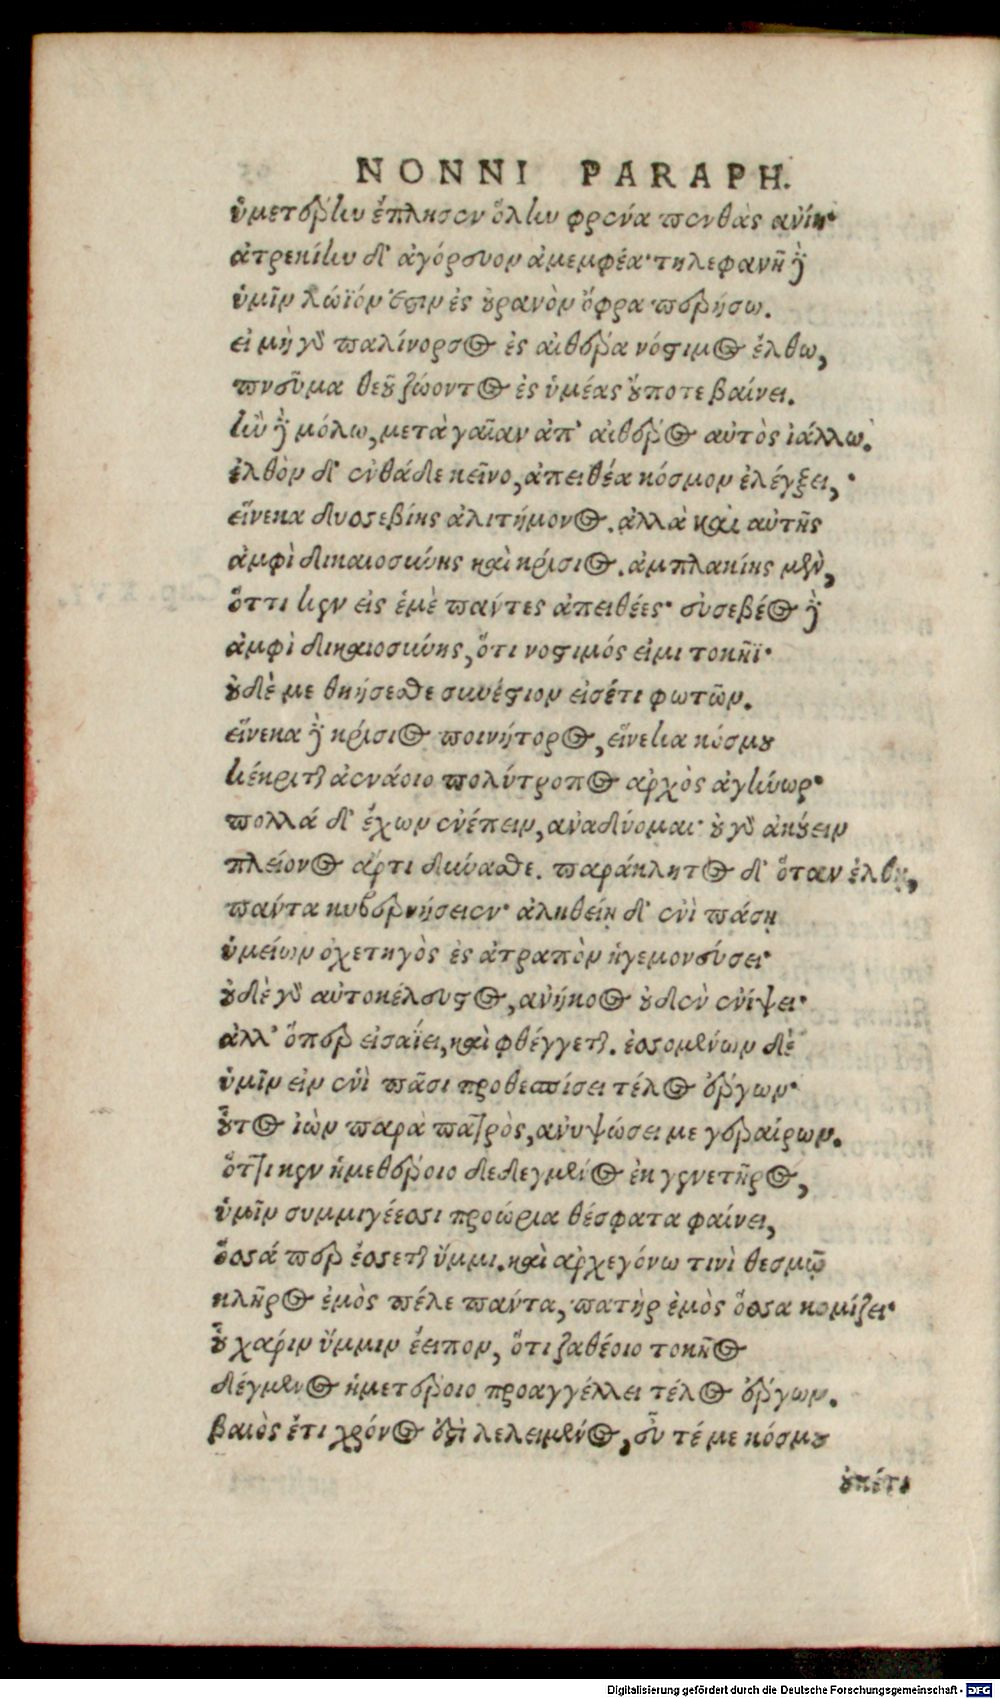 NONNI PARAPH.
ὑμετέρην ἔπλησεν ὅλην φρένα πενθὰς ἀνίη·
ἀτρεκίην δ' ἀγόρευον ἀμεμφέα· τηλεφανῆ δὲ
ὑμῖν λώϊόν ἐστιν ἐς οὐρανὸν ὄφρα περήσω.
εἰ μὴ γὰρ παλίνορσος ἐς αἰθέρα νόστιμος ἔλθω,
πνεῦμα θεοῦ ζώοντος ἐς ὑμέας οὔποτε βαίνει.
ἢν δὲ μόλω, μετὰ γαῖαν ἀπ' αἰθέρος αὐτὸς ἰάλλω.
ἐλθὸν δ' ἐνθάδε κεῖνο, ἀπειθέα κόσμον ἐλέγξει,
εἵνεκα δυσσεβίης ἀλιτήμονος. ἀλλὰ καὶ αὐτῆς
ἀμφὶ δικαιοσύνης καὶ κρίσιος. ἀμπλακίης μὲν,
ὅττι κεν εἰς ἐμὲ πάντες ἀπειθέες· εὐσεβέος δὲ
ἀμφὶ δικαιοσύνης, ὅτι νόστιμός εἰμι τοκῆϊ·
οὐδὲ με θηήσεσθε συνέστιον εἰσέτι φωτῶν.
εἵνεκα δὲ κρίσιος ποινήτορος, εἵνεκα κόσμου
κέκριται ἀενάοιο πολύτροπος ἀρχὸς ἀγήνωρ·
πολλά δ' ἔχων ἐνέπειν, ἀναδύομαι· οὐ γὰρ ἀκούειν
πλείονος ἄρτι δύνασθε. παράκλητος δ' ὅταν ἔλθῃ,
πάντα κυβερνήσειεν· ἀληθείῃ δ' ἐνὶ πάσῃ
ὑμείων ὀχετηγὸς ἐς ἀτραπὸν ἡγεμονεύσει·
οὐδὲ γὰρ αὐτοκέλευστος, ἀνήκοος οὐδὲν ἐνίψει·
ἀλλ' ὅπερ εἰσαΐει, καὶ φθέγγεται. ἐσσομένων δὲ
ὑμῖν εἰν ἑνὶ πᾶσι προθεσπίσει τέλος ἔργων·
οὗτος ἰὼν παρὰ πατρὸς, ἀνυψώσει με γεραίρων.
ὅττι κεν ἡμεθέροιο δεδεγμένος ἐκ γενετῆρος,
ὑμῖν συμμιγέεσσι προώρια θέσφατα φαίνει,
ὅσσά περ ἔσσεται ὕμμι. καὶ ἀρχεγόνω τινὶ θεσμῷ
κλῆρος ἐμὸς πέλε πάντα, πατὴρ ἐμὸς ὅσσα κομίζει·
οὗ χάριν ὕμμιν ἔειπον, ὅτι ζαθέοιο τοκῆος
δέγμενος ἡμετέροιο προαγγέλλει τέλος ἔργων.
βαιὸς ἔτι χρόνος ἐστὶ λελειμένος, εὖ τέ με κόσμου
οὐκέτι
Digitalisierung gefördert durch die Deutsche Forschungsgemeinschaft - DFG